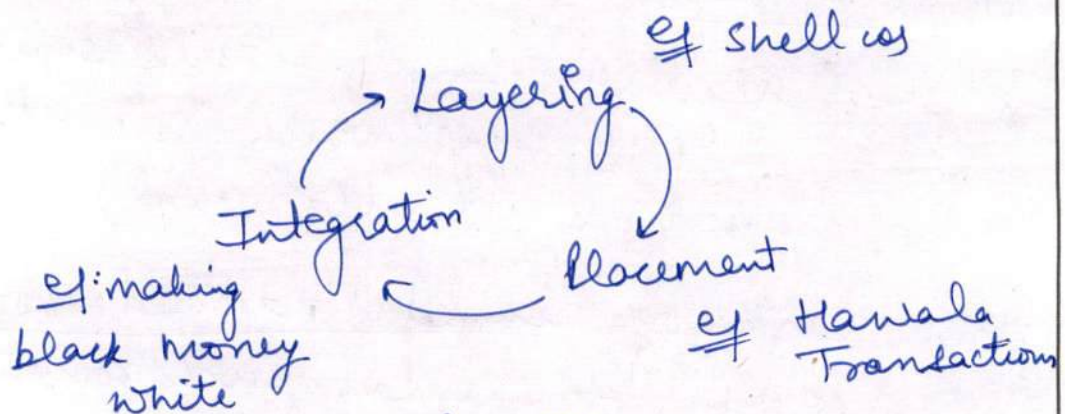 eg shell cos
Layering
Integration
Placement
eg: making
black money
white
eg Hawala
Transactions